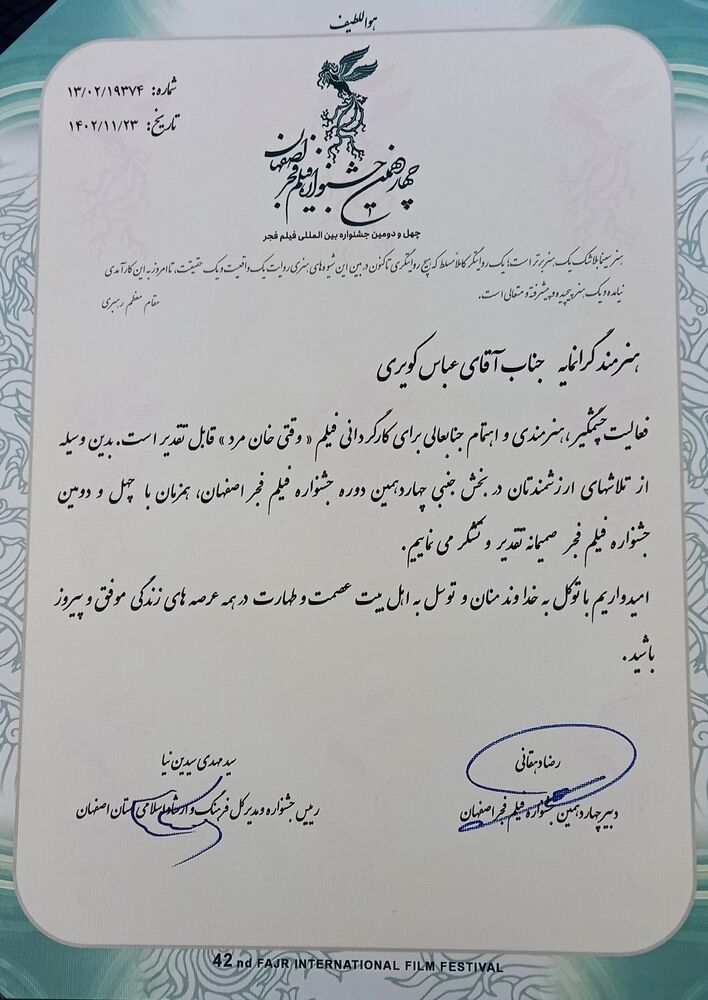 هواللطیف
شماره: ۱۳/۰۲/۱۹۳۷۴
تاریخ: ۱۴۰۲/۱۱/۲۳
چهاردهمین جشنواره فیلم فجر اصفهان
چهل و دومین جشنواره بین المللی فیلم فجر
هنر سینما بلاشک یک هنر برتر است؛ یک روایتگر کاملاً مسلط که هیچ روایتگری تاکنون در بین این شیوه های هنری روایت یک واقعیت و یک حقیقت، تا امروز به این کارآمدی
نیامده و یک هنر پیچیده و پیشرفته و متعالی است.
مقام معظم رهبری
هنرمند گرانمایه جناب آقای عباس کویری
فعالیت چشمگیر، هنرمندی و اهتمام جنابعالی برای کارگردانی فیلم « وقتی خان مرد » قابل تقدیر است. بدین وسیله
از تلاشهای ارزشمندتان در بخش جنبی چهاردهمین دوره جشنواره فیلم فجر اصفهان، همزمان با چهل و دومین
جشنواره فیلم فجر صمیمانه تقدیر و تشکر می نماییم.
امیدواریم با توکل به خداوند منان و توسل به اهل بیت عصمت و طهارت در همه عرصه های زندگی موفق و پیروز
باشید.
رضا دهقانی
دبیر چهاردهمین جشنواره فیلم فجر اصفهان
سید مهدی سیدین نیا
رییس جشنواره و مدیر کل فرهنگ و ارشاد اسلامی استان اصفهان
42 nd FAJR INTERNATIONAL FILM FESTIVAL